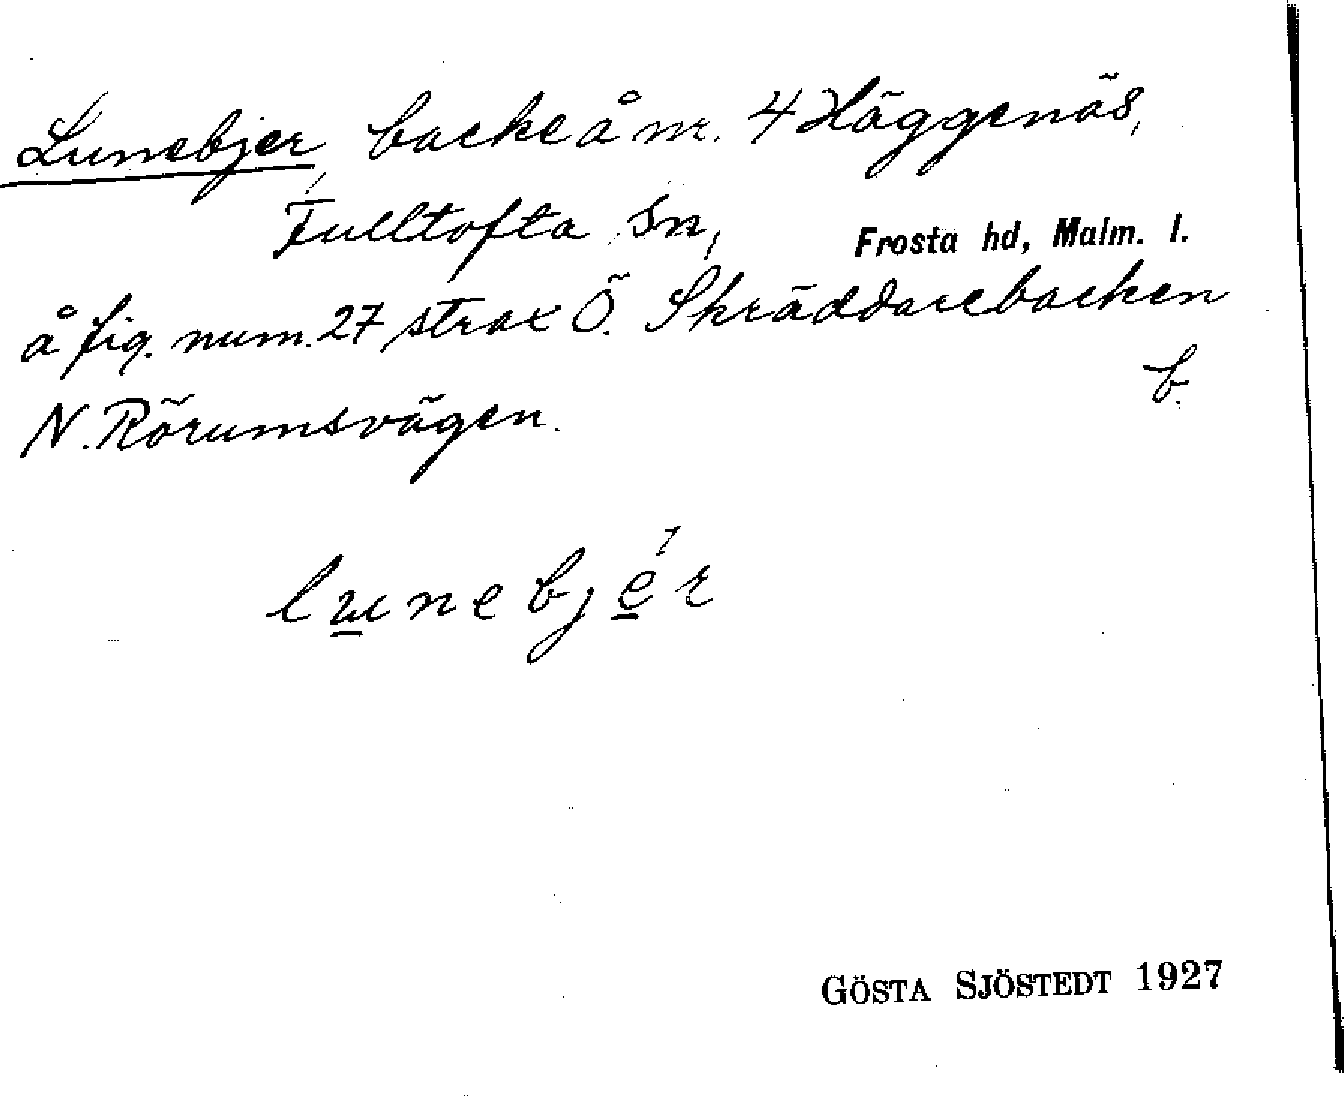 Lunebjer, backe å nr. 4 Häggenäs,
Fulltofta sn, Frosta hd, Malm. l.
å fig. num. 27 strax Ö. Skräddarebacken
b.
N. Rörumsvägen.
lunebjér
GÖSTA SJÖSTEDT 1927